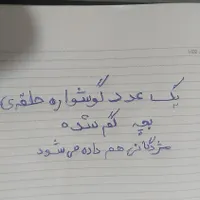 یک عدد گوشواره حلقه‌ی
بچه گم شده
مژدگانی هم داده می شود